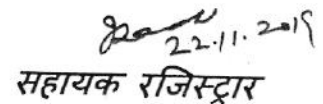 22.11.2019
सहायक रजिस्ट्रार